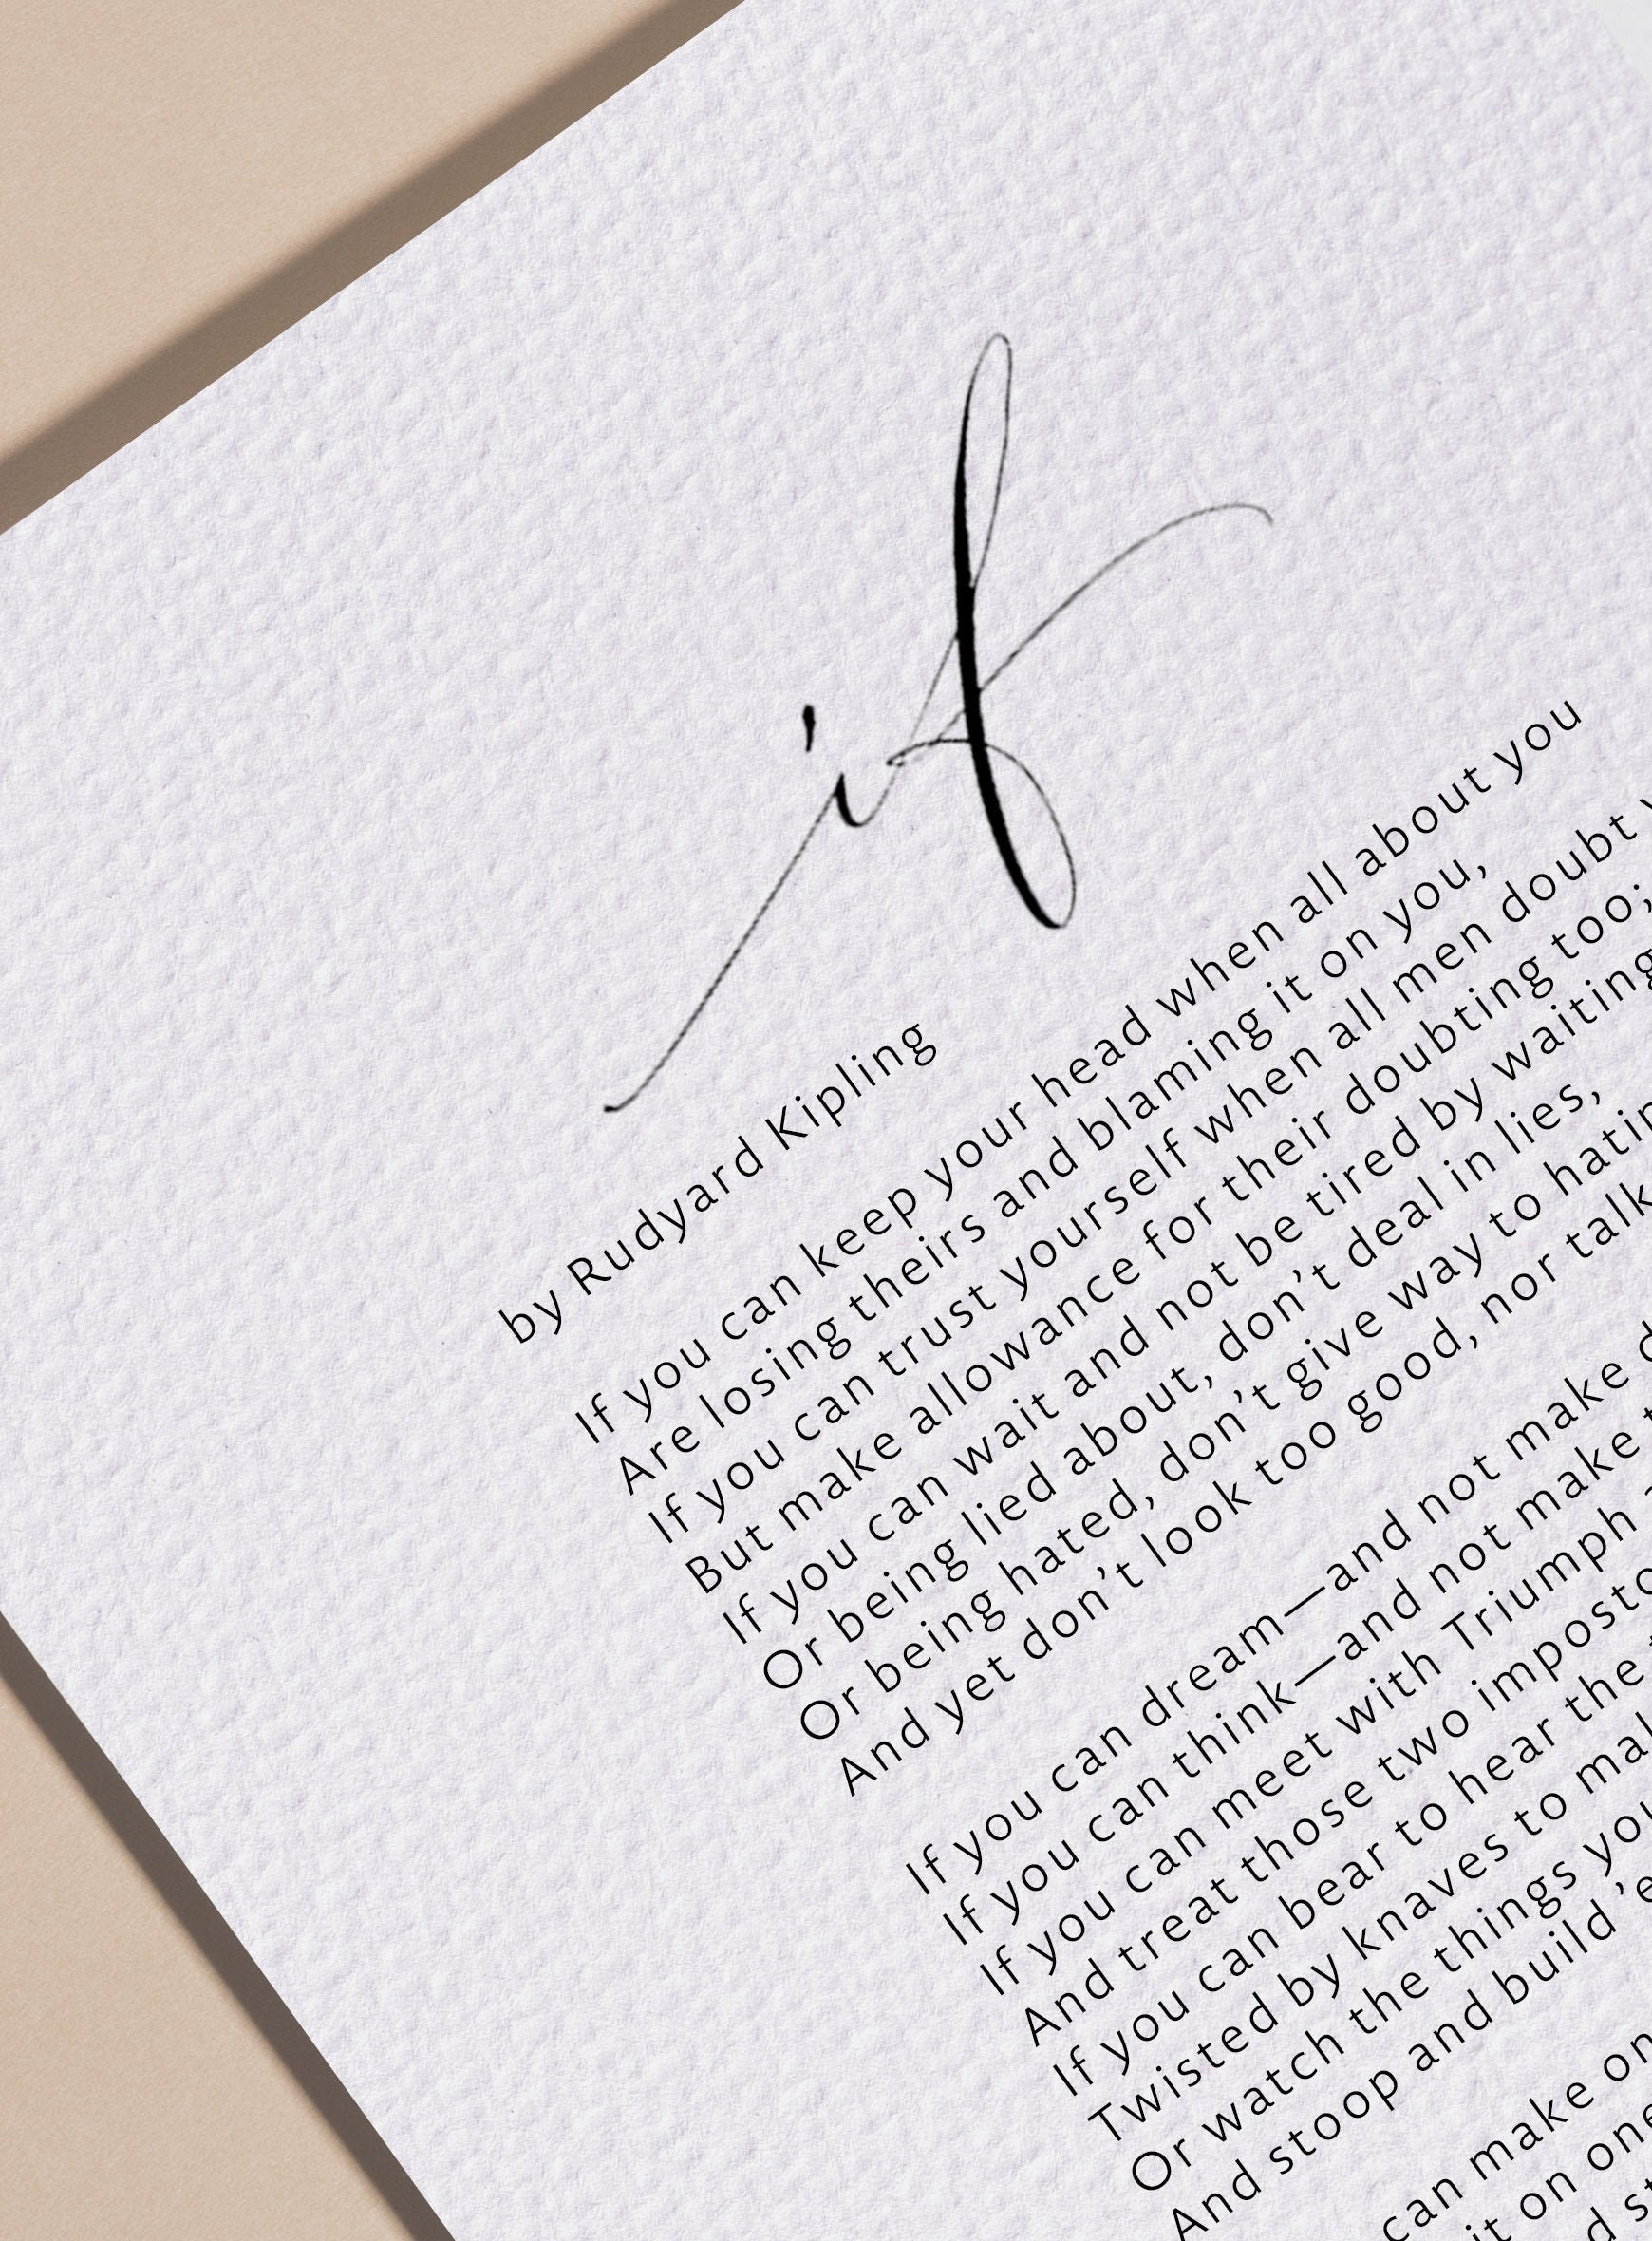 if
by Rudyard Kipling
If you can keep your head when all about you
Are losing theirs and blaming it on you,
If you can trust yourself when all men doubt
But make allowance for their doubting too;
If you can wait and not be tired by waiting
Or being lied about, don’t deal in lies,
Or being hated, don’t give way to
And yet don’t look too good, nor talk
If you can dream—and not make
If you can think—and not make
If you can meet with Triumph
And treat those two
If you can bear to hear the
Twisted by knaves to
Or watch the things
And stoop and build
can make
it on